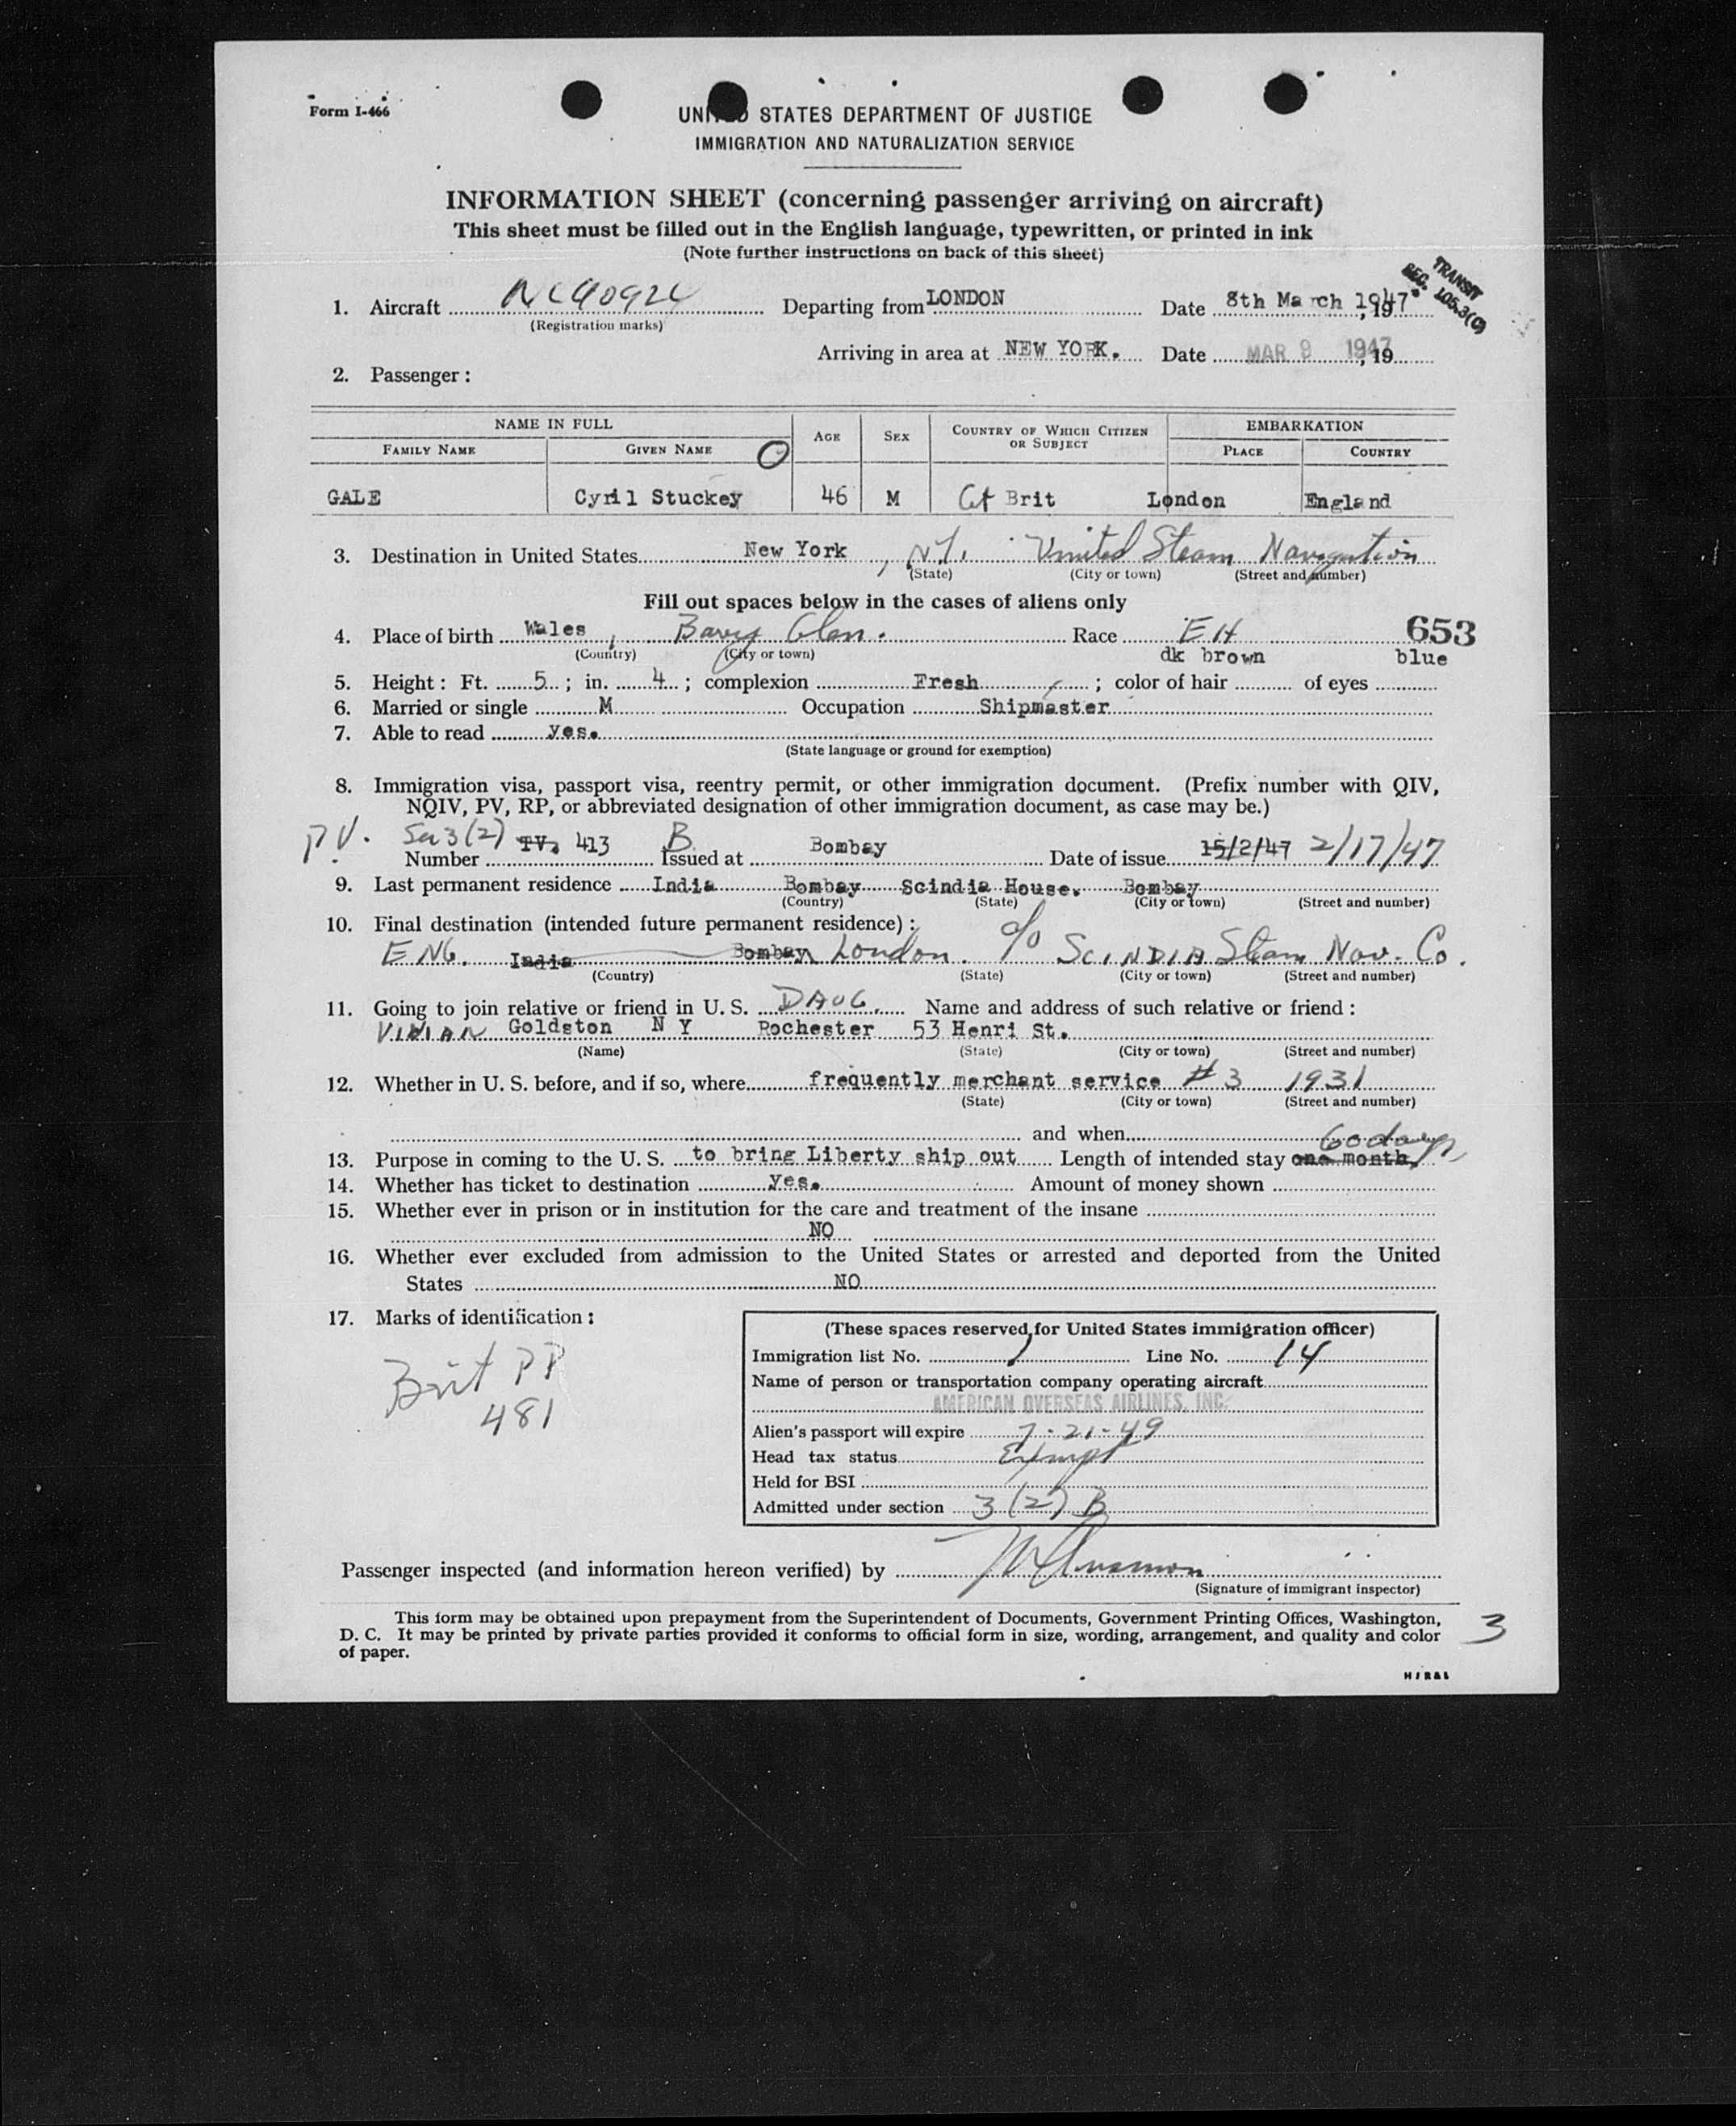 Form I-466
UNITED STATES DEPARTMENT OF JUSTICE
IMMIGRATION AND NATURALIZATION SERVICE
INFORMATION SHEET (concerning passenger arriving on aircraft)
This sheet must be filled out in the English language, typewritten, or printed in ink
(Note further instructions on back of this sheet)
TRANSIT
SEC. 105.3(C)
1. Aircraft Departing from LONDON Date 8th March 1947, 19
(Registration marks)
Arriving in area at NEW YORK. Date MAR 9 1947, 19
2. Passenger:
NAME IN FULL AGE SEX COUNTRY OF WHICH CITIZEN OR SUBJECT EMBARKATION
FAMILY NAME GIVEN NAME PLACE COUNTRY
GALE Cyril Stuckey 46 M Gt Brit London England
3. Destination in United States New York, N.Y. United Steam Navigation
(State) (City or town) (Street and number)
Fill out spaces below in the cases of aliens only
4. Place of birth Wales, Race 653
(Country) (City or town) dk brown blue
5. Height: Ft. 5; in. 4; complexion Fresh; color of hair of eyes
6. Married or single M Occupation Shipmaster
7. Able to read yes.
(State language or ground for exemption)
8. Immigration visa, passport visa, reentry permit, or other immigration document. (Prefix number with QIV,
NQIV, PV, RP, or abbreviated designation of other immigration document, as case may be.)
P.V. Sec 3(2) TV. 413 B
Number Issued at Bombay Date of issue 15/2/47 2/17/47
9. Last permanent residence India Bombay Scindia House. Bombay
(Country) (State) (City or town) (Street and number)
10. Final destination (intended future permanent residence):
ENG. India Bombay London. c/o SCINDIA Steam Nav. Co.
(Country) (State) (City or town) (Street and number)
11. Going to join relative or friend in U. S. DAUG. Name and address of such relative or friend:
VIVIAN Goldston N Y Rochester 53 Henri St.
(Name) (State) (City or town) (Street and number)
12. Whether in U. S. before, and if so, where frequently merchant service # 3 1931
(State) (City or town) (Street and number)
and when
13. Purpose in coming to the U. S. to bring Liberty ship out Length of intended stay one month, 60 days
14. Whether has ticket to destination yes. Amount of money shown
15. Whether ever in prison or in institution for the care and treatment of the insane
NO
16. Whether ever excluded from admission to the United States or arrested and deported from the United
States NO
17. Marks of identification:
Brit PP
481
(These spaces reserved for United States immigration officer)
Immigration list No. 1 Line No. 14
Name of person or transportation company operating aircraft
AMERICAN OVERSEAS AIRLINES, INC.
Alien's passport will expire 7-21-49
Head tax status Exempt
Held for BSI
Admitted under section 3(2) B
Passenger inspected (and information hereon verified) by
(Signature of immigrant inspector)
This form may be obtained upon prepayment from the Superintendent of Documents, Government Printing Offices, Washington,
D. C. It may be printed by private parties provided it conforms to official form in size, wording, arrangement, and quality and color
of paper.
3